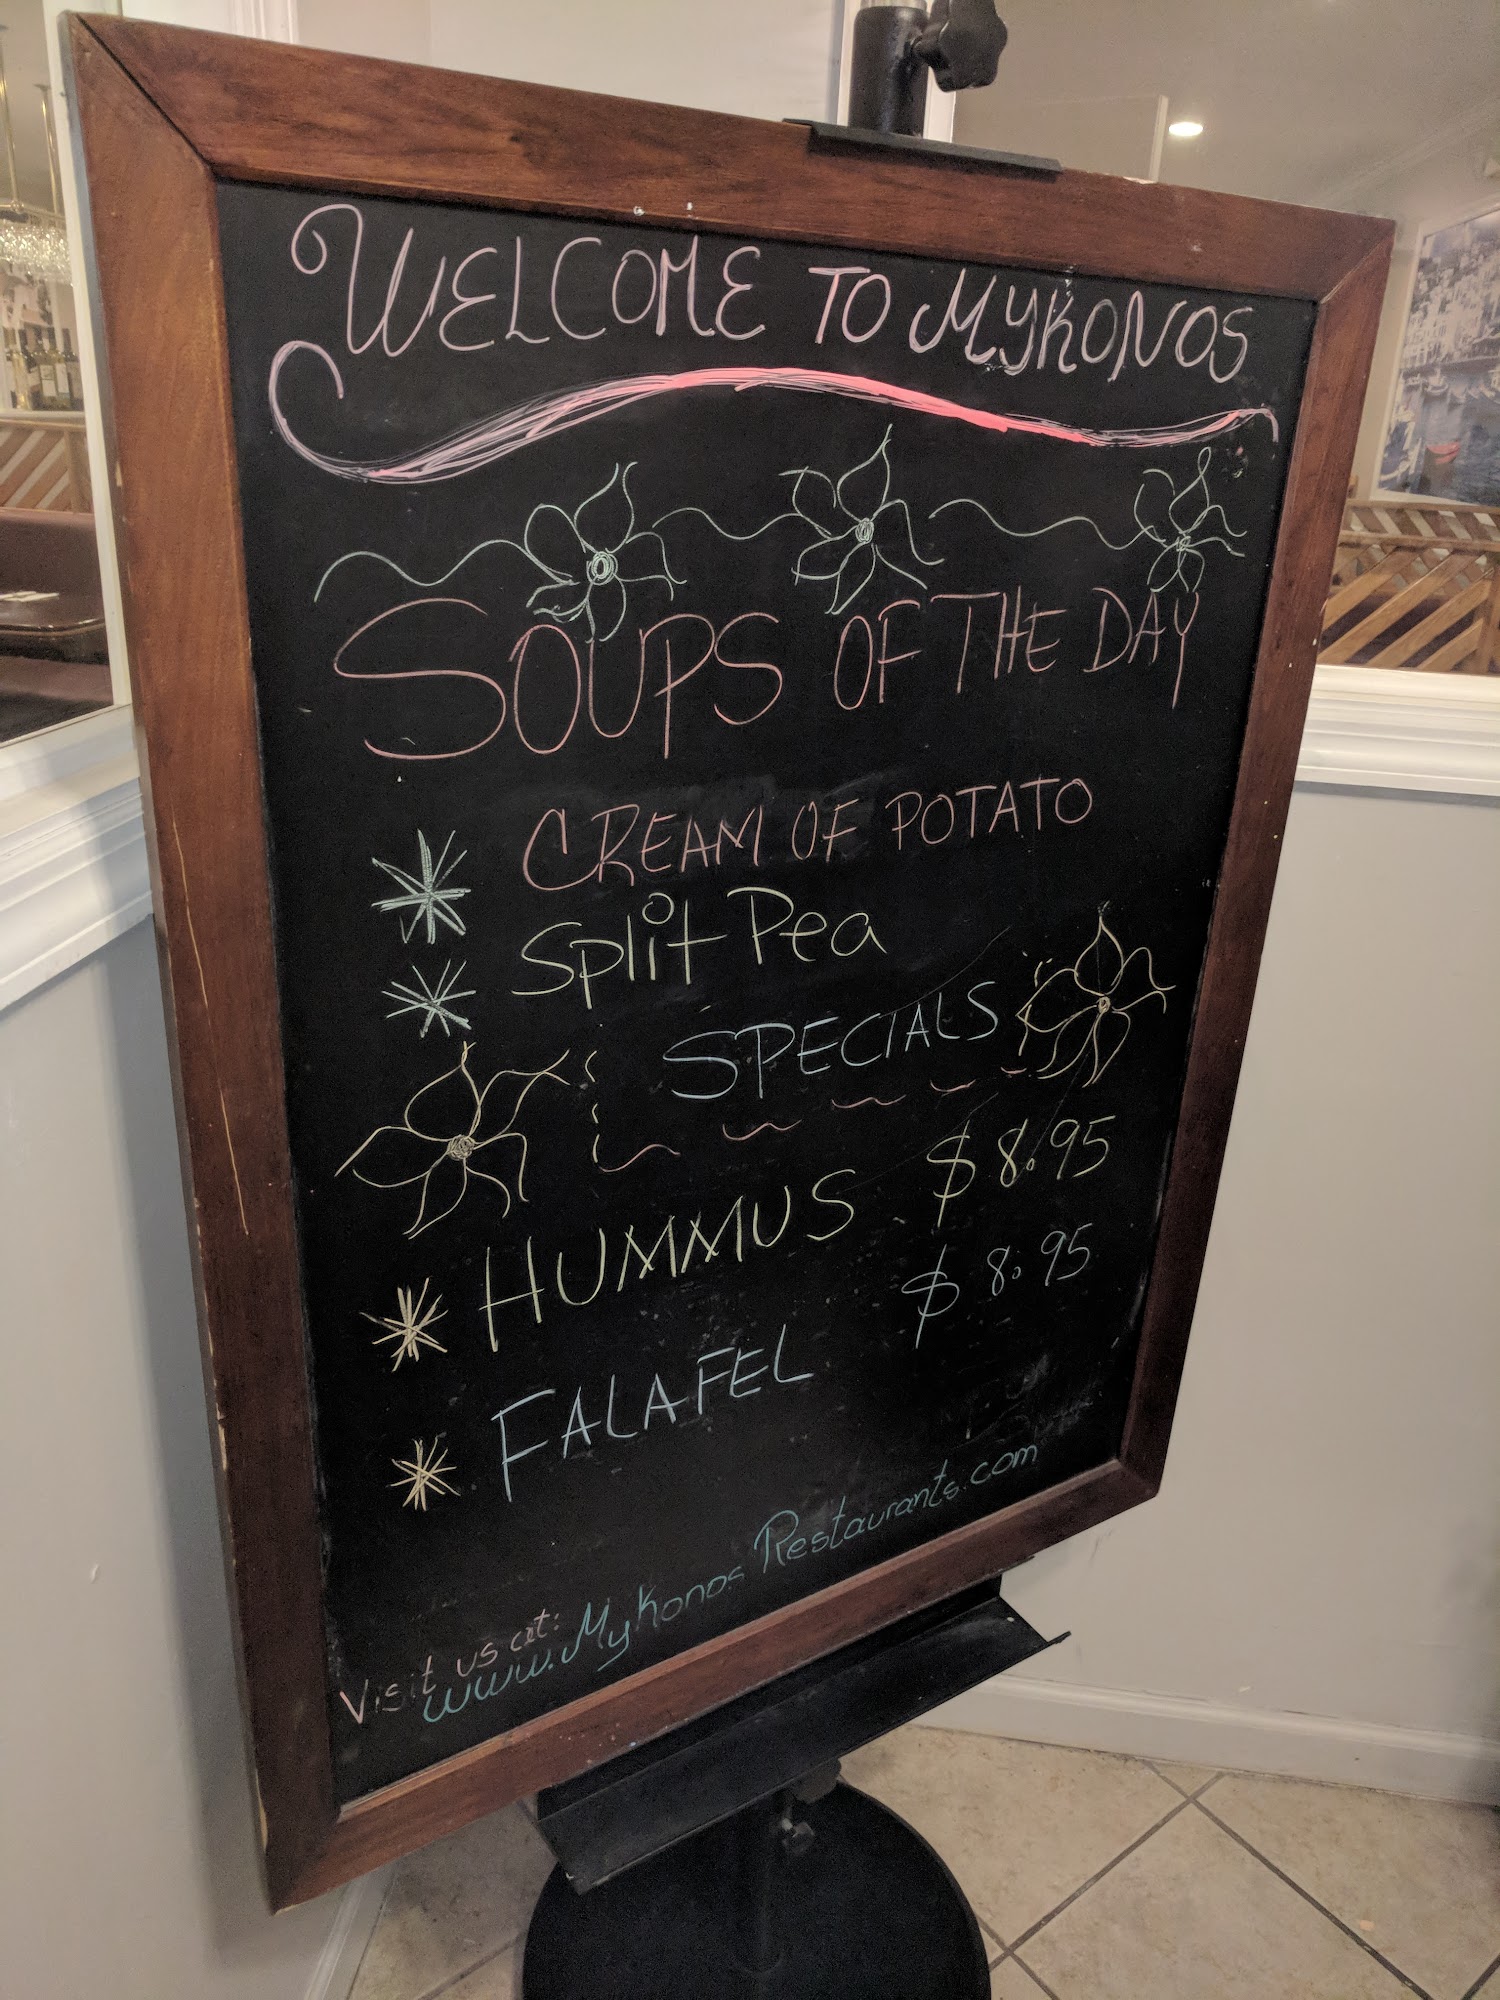 WELCOME TO MYKONOS
SOUPS OF THE DAY
CREAM OF POTATO
Split Pea
SPECIALS
HUMMUS $8.95
FALAFEL $8.95
Visit us at:
www.MyKonos Restaurants.com